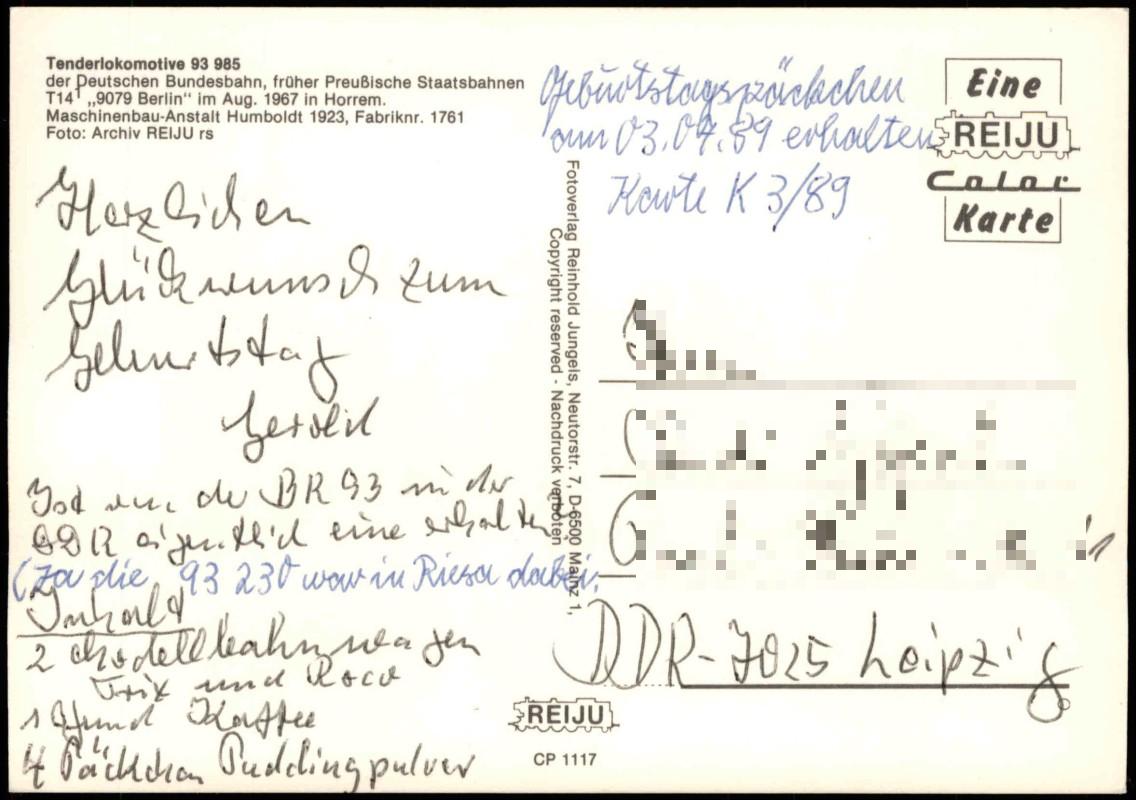 Tenderlokomotive 93 985
der Deutschen Bundesbahn, früher Preußische Staatsbahnen
T14¹ „9079 Berlin“ im Aug. 1967 in Horrem.
Maschinenbau-Anstalt Humboldt 1923, Fabriknr. 1761
Foto: Archiv REIJU rs
Herzlichen
Glückwunsch zum
Geburtstag
Gerold
Ist von der BR 93 in der
DDR eigentlich eine erhalten
(Ja die 93 230 war in Riesa dabei.
Inhalt
2 Modellbahnwagen
Trix und Roco
1 Pfund Kaffee
4 Päckchen Puddingpulver
Fotoverlag Reinhold Jungels, Neutorstr. 7, D-6500 Mainz 1,
Copyright reserved - Nachdruck verboten
Geburtstagspäckchen
am 03.04.89 erhalten
Karte K 3/89
Eine
REIJU
Color
Karte
DDR-7025 Leipzig
REIJU
CP 1117